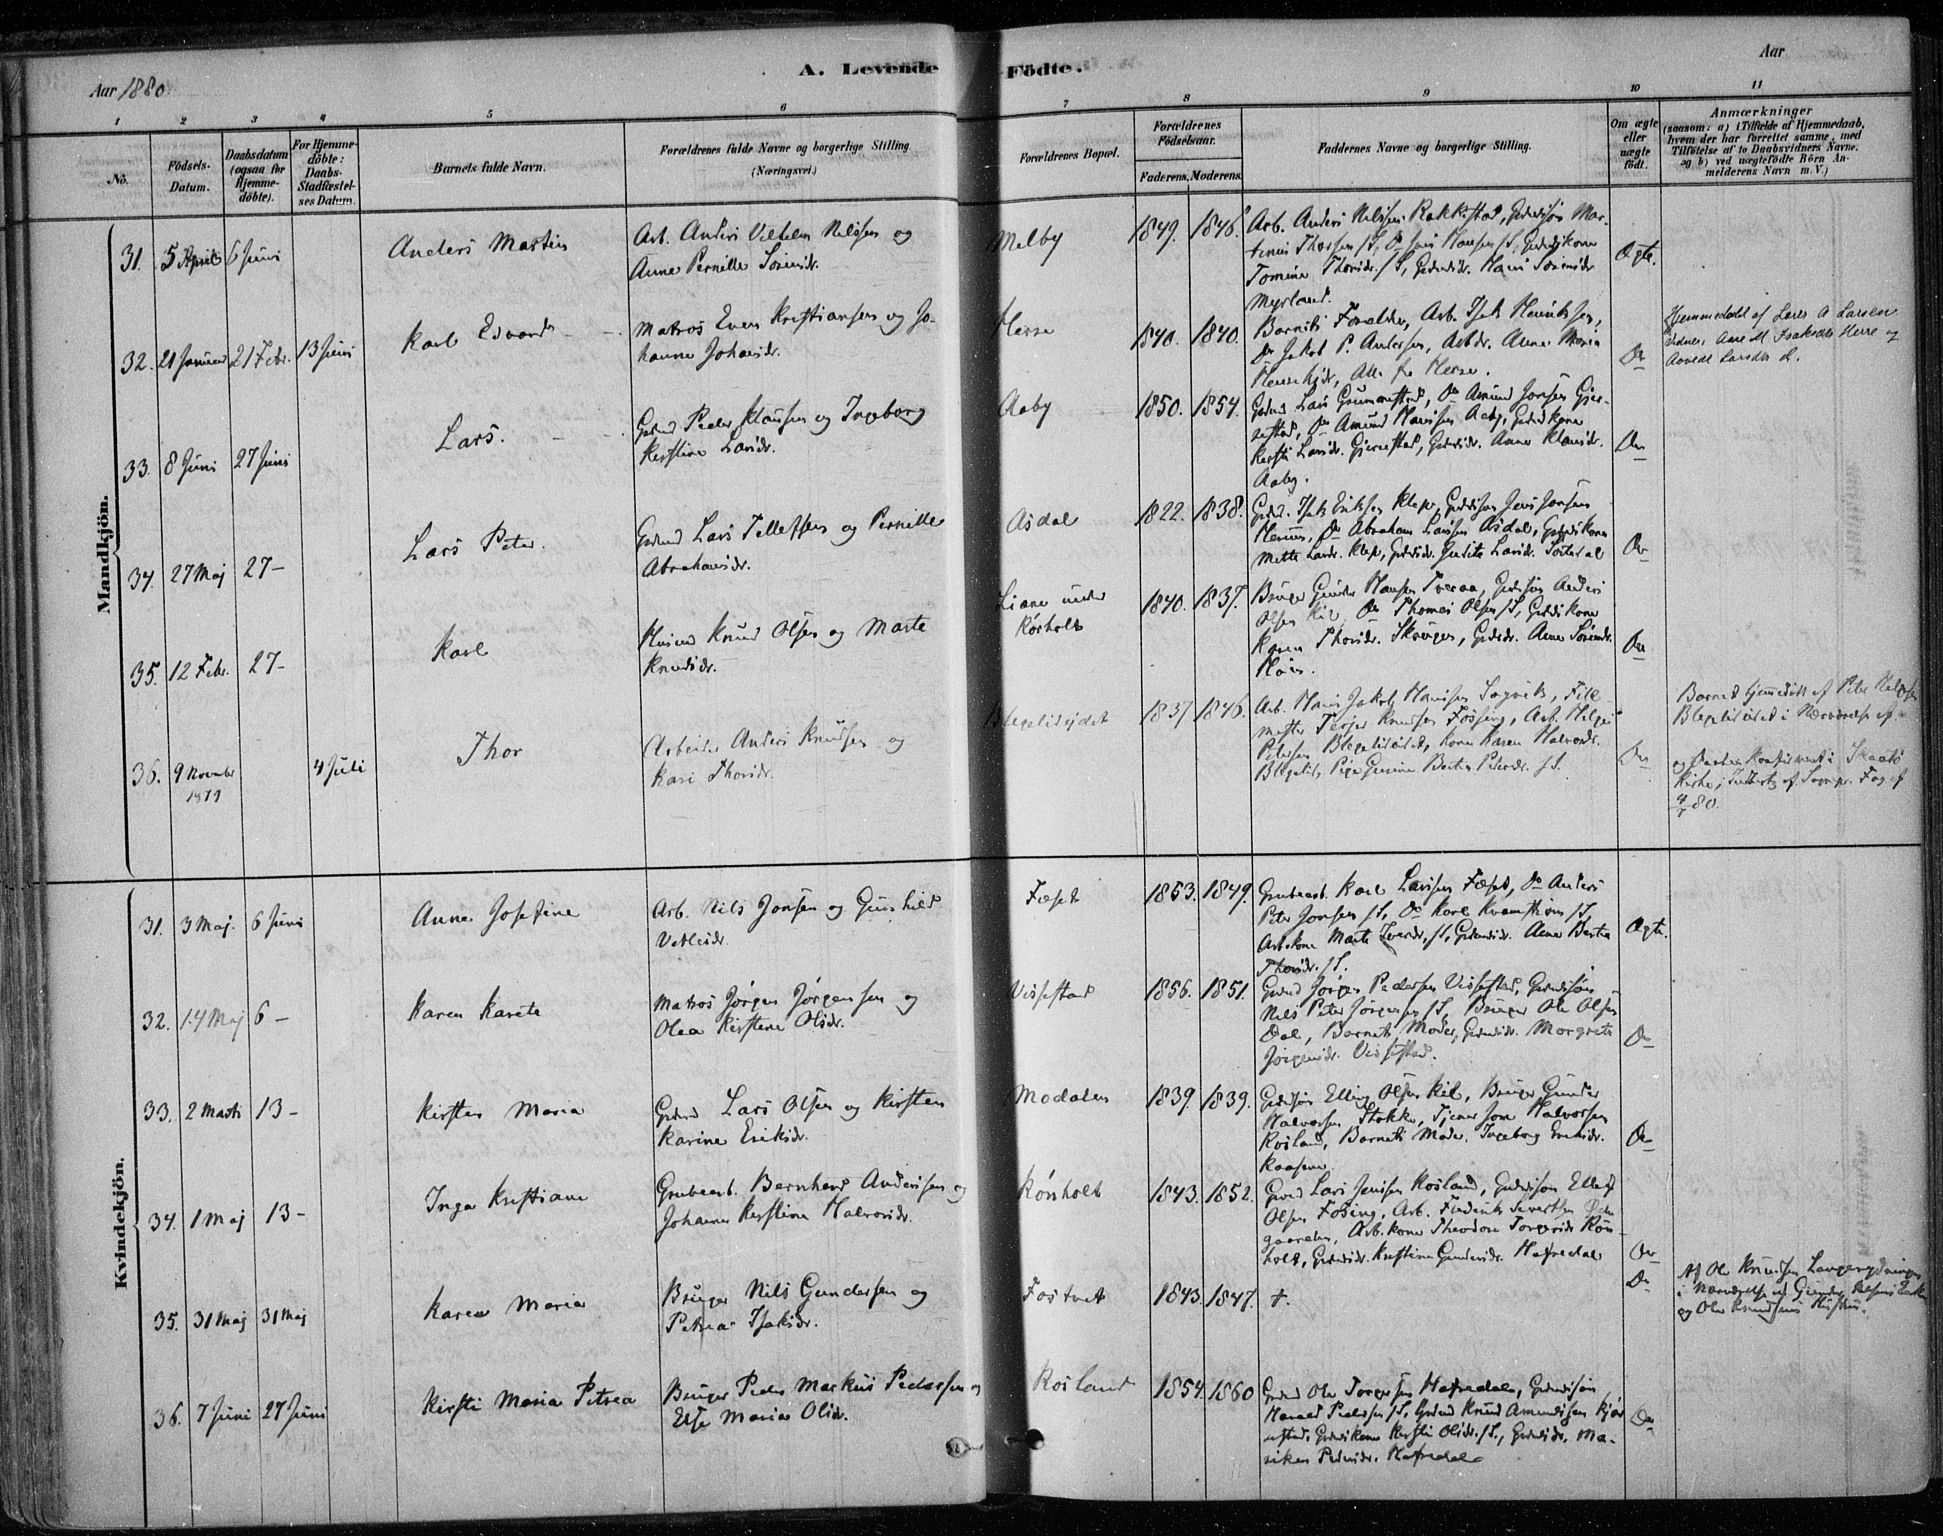 Aar 1880.
A. Levende Födte.
Aar
1 2 3 4 5 6 7 8 9 10 11
No.
Födsels-Datum.
Daabsdatum (ogsaa for Hjemme-döbte).
For Hjemme-döbte: Daabs-Stadfæstel-ses Datum.
Barnets fulde Navn.
Forældrenes fulde Navne og borgerlige Stilling.
(Næringsvei.)
Forældrenes Bopæl.
Forældrenes Födselsaar.
Faderens. Moderens.
Faddernes Navne og borgerlige Stilling.
Om ægte eller uægte födt.
Anmærkninger
(saasom: a) i Tilfælde af Hjemmedaab,
hvem der har forrettet samme, med
Tilföielse af to Daabsvidners Navne.
og b) ved uægtefödte Börn An-
melderens Navn m. V.)
Mandkjön.
31. 5 April 6 Juni Anders Martin
Arb. Anders Vilhelm Nilssen og
Anne Pernille Sørensdr.
Melby 1849. 1846.
Arb. Anders Nilssen Rakkestad, Grdrsøn Mar-
tinus Thorsen st., Do Jens Hansen st., Grdrskone
Tomine Thorsdr. st., Grdrsdr. Maren Sørensdr.
Myrland.
Ægte.
32. 21 Januar 21 Febr. 13 Juni Karl Edvard
Matros Even Kristiansen og Jo-
hanne Johansdr.
Herre 1840. 1840.
Barnets Forældre, Arb. Isak Henriksen,
Do Jakob P. Andersen, Arbdr. Anne Maria
Henriksdr., Alle fra Herre.
Do
Hjemmedøbt af Lars A Larsen
Vidner, Anne M Isaksdtr Herre og
33. 8 Juni 27 Juni Lars.
Grdrd Peder Klausen og Ingeborg
Kirstine Larsdr.
Aaby 1850. 1854.
Grdrd Lars Grummestad, Do Amund Jonsen Gjer-
nestad, Do Amund Hansen Aaby, Grdrskone
Kirsti Larsdr. Gjernestad, Grdrsdr. Anne Klausdr.
Aaby.
Do
34. 27 Maj 27 - Lars Peter.
Grdrd Lars Tellefsen og Pernille
Abrahamsdr.
Asdal 1822. 1838.
Grdrd. Isak Eriksen Klep, Grdrsøn Jens Jonsen
Do Abraham Larsen Asdal, Grdrskone
Mette Larsdr. Klep, Grdrsdr.
Do
35. 12 Febr. 27 - Karl
Husmd Knud Olsen og Marte
Knudsdr.
Liane under
Rørholt 1840. 1837.
Bruger Gunder Hansen Tveraa, Grdrsøn Anders
Olsen Kil, Do Thomas Olsen st., Grdrskone
Karen Thorsdr. Skougen, Grdrsdr. Anne Sørensdr.
Do
36. 9 November 1879 4 Juli Thor
Arbeider Anders Knudsen og
Kari Thorsdr.
Blegelistjdet 1837 1846.
Arb. Hans Jakob Hansen Sogvik,
Terjer Knudsen Fossing, Arb. Helge
Petersen kone Karen Halvorsdr.
Do
Barnet hjemmedøbt af Peter
og Daaben konfirmeret i Skaatø
Kirke, af Sognepr.
4/7 80.
Kvindekjön.
31. 3 Maj. 6 Juni Anne Josefine
Arb. Nils Jonsen og Gunhild
Vetlesdr.
Fæset 1853. 1849.
Grubearb. Karl Larsen Fæset, Do Anders
Peter Jonsen st., Do Karl st.,
Arb.kone Marte Iversdr. st., Grdrsdr. Anne Bertea
Thorsdr. st.
Ægte.
32. 14 Maj 6 - Karen Karete
Matros Jørgen Jørgensen og
Olea Kirstine Olsdr.
Vissestad 1856. 1851.
Grdrd Jørgen Pedersen Vissestad, Grdrsøn
Nils Peter Jørgensen st., Bruger Ole Olsen
Dal, Barnets Moder, Grdrsdr. Margrete
Jørgensdr. Vissestad.
Do
33. 2 Marts 13 - Kirsten Maria
Grdrd Lars Olsen og Kirsten
Karine Eriksdr.
Modalen 1839. 1839.
Grdrsøn Elling Olsen Kil, Bruger Gunder
Halvorsen Stokke, Tjener Jon Halvorsen
Rosland, Barnets Moder, Ingeborg Eriksdr.
Kaasene
Do
34. 1 Maj 13 - Inga Kristiane
Grubearb. Bernhard Andersen og
Johanne Kirstine Halvorsdr.
Rønholt 1843. 1852.
Grdrd Lars Jensen Rosland, Grdrsøn Ellef
Olsen Fosing, Arb. Frederik Sivertsen Øde-
gaarden, Arb.kone Theodore Torgersdr. Røn-
holt, Grdrsdr. Kristine Gundersdr. Hafredal
Do
35. 31 Maj 31 Maj Karen Maria
Bruger Nils Gundersen og
Petrea Isaksdr.
Fostvet 1843. 1847. †.
Do
Af Ole Knudsen Langrydningen
i Nærværelse af Gunder Nilsens Enke
og Ole Knudsens Hustru.
36. 7 Juni 27 Juni Kirsti Maria Petrea
Bruger Peder Markus Pedersen og
Else Maria Olsdr.
Rosland 1854. 1860
Grdrd Ole Torgersen Hafredal, Grdrsøn
Harald Pedersen st., Grdrd Knud Amundsen Kjør-
restad, Grdrskone Kirsti Olsdr. st., Grdrsdr. Ma-
riken Pedersdr. Hafredal
Do